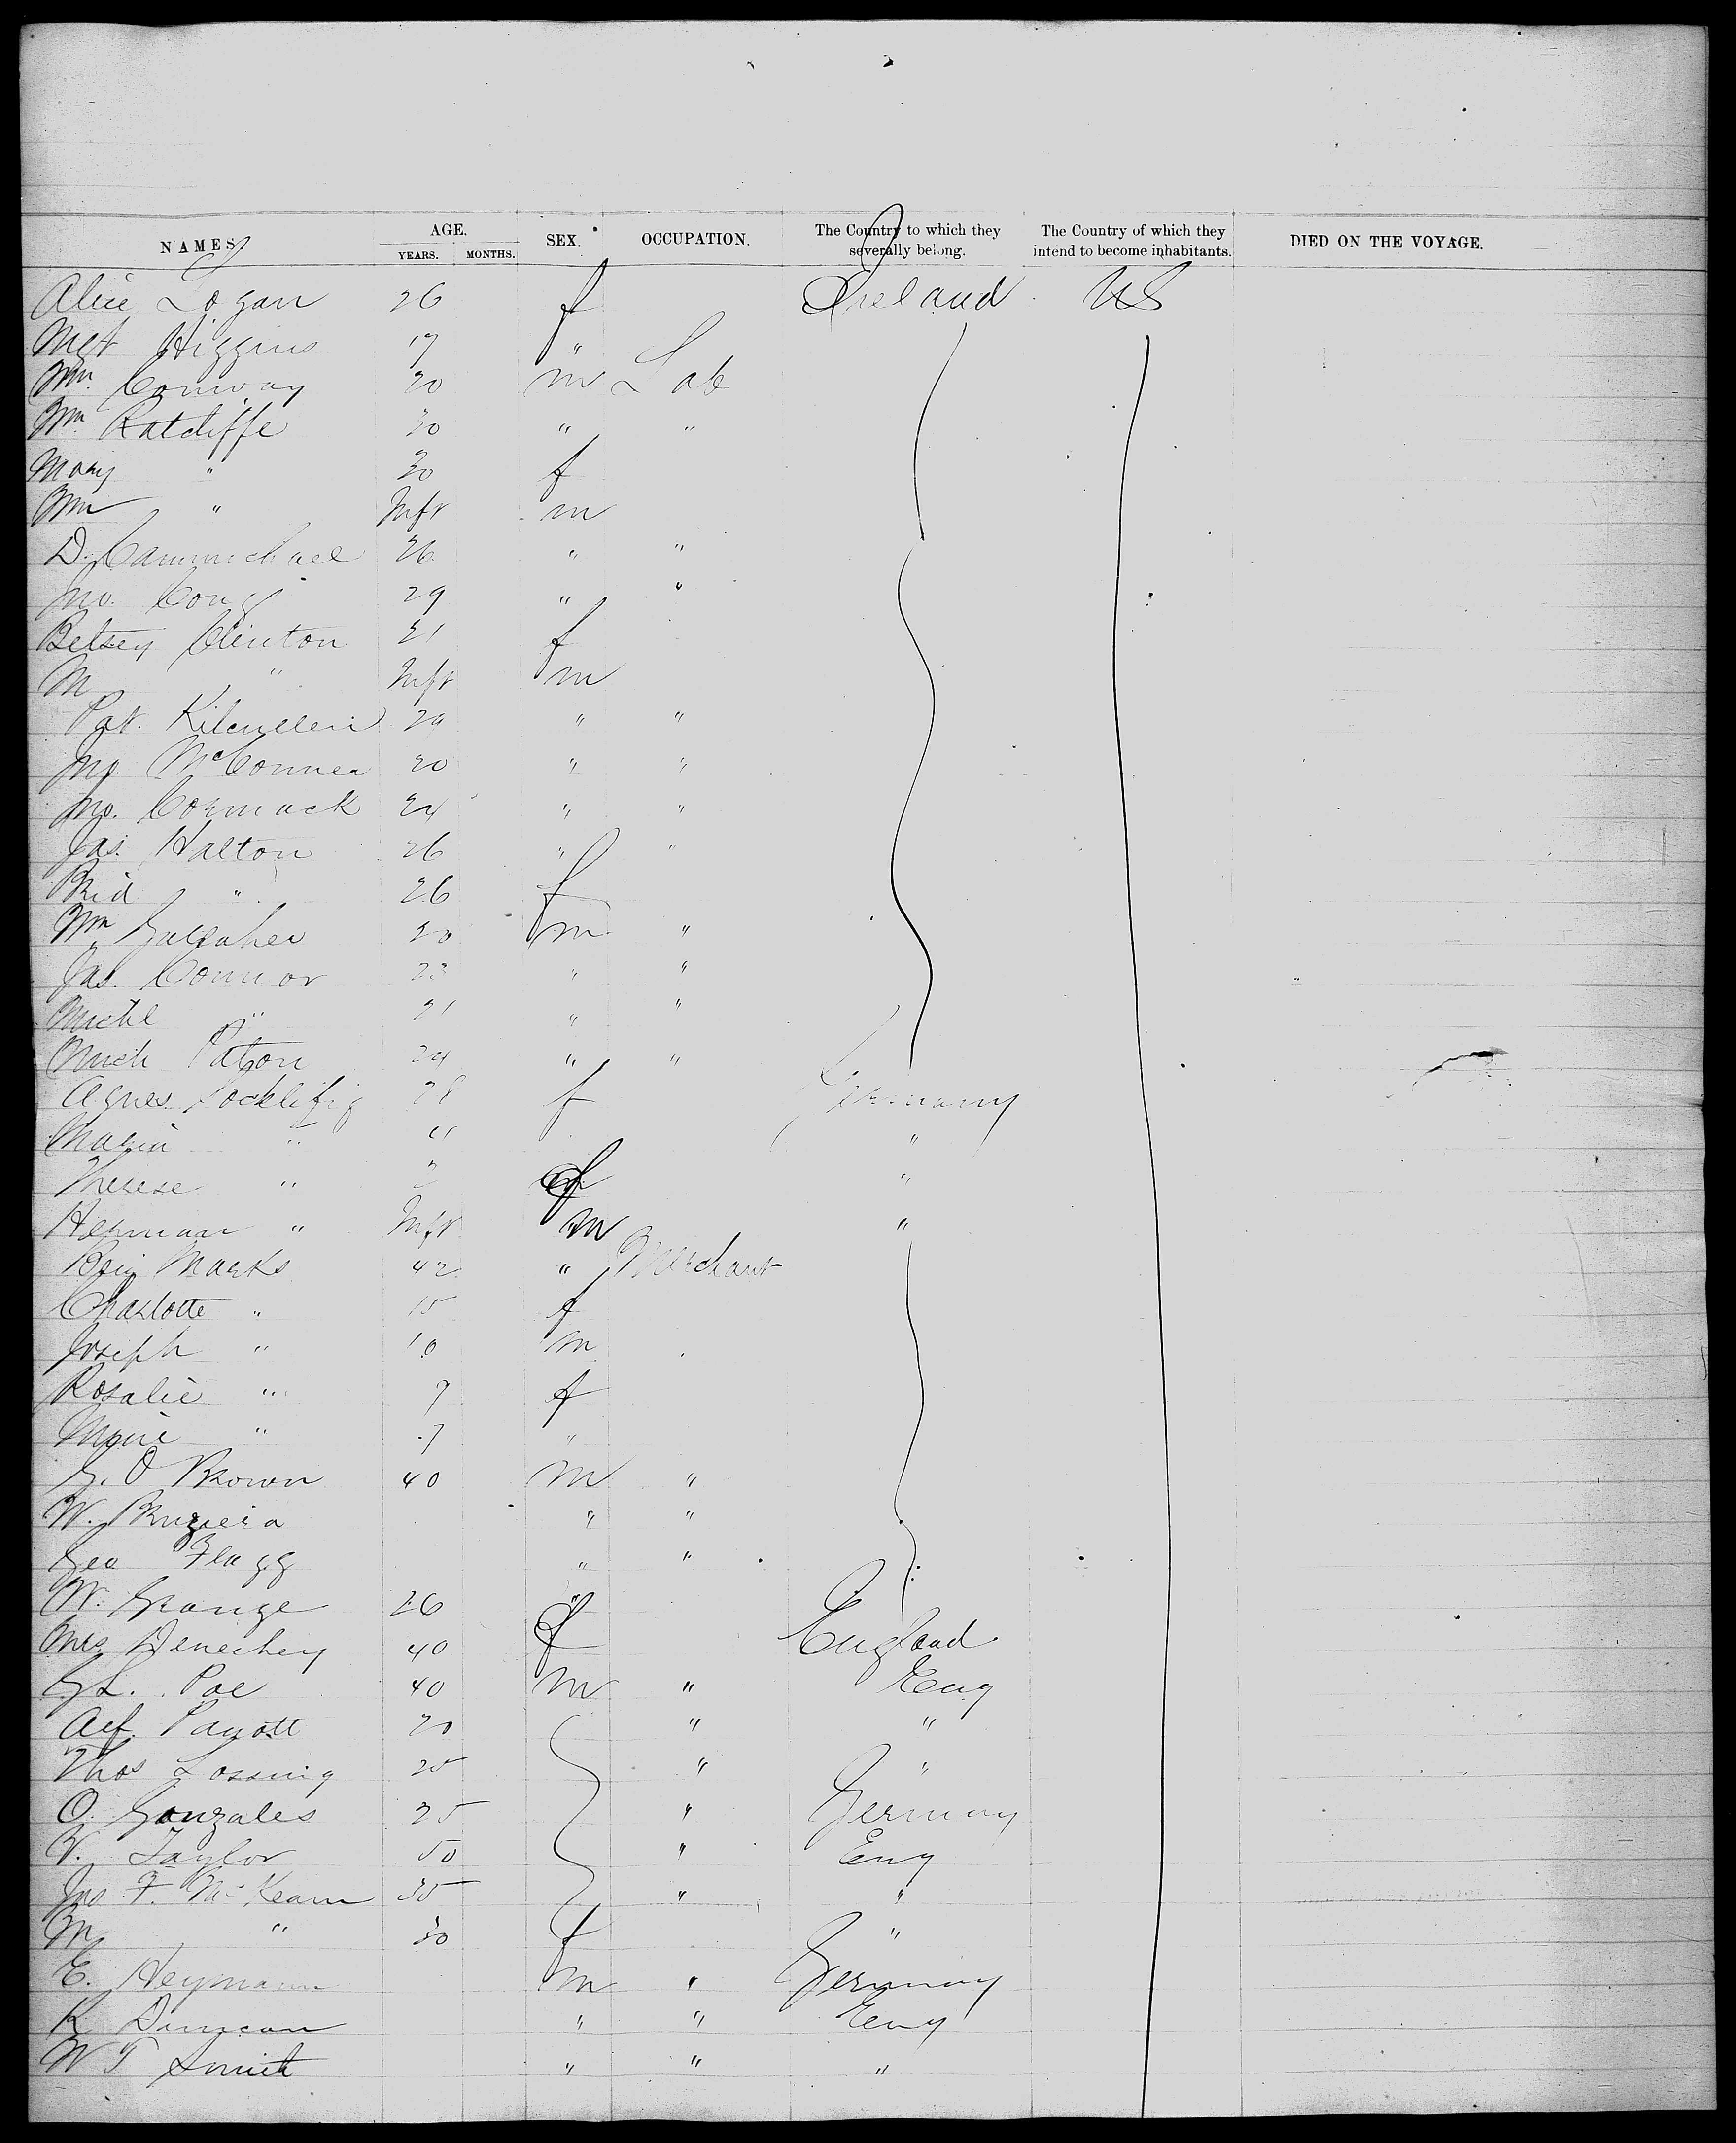 NAMES AGE. SEX. OCCUPATION. The Country to which they severally belong. The Country of which they intend to become inhabitants. DIED ON THE VOYAGE.
YEARS. MONTHS.
Alice Logan 26 f Ireland US
Mgt Higgins 17 "
Wm. Conway 20 m Lab
Wm. Ratcliffe 30 " "
Mary " 30 f
Wm " Inft m
D. Cammichael 26 " "
Jno. 29 " "
Betsey Clinton 21 f
M " Inft m
Pat. Kilcullen " "
Jno. McConnea 20 " "
Jno. Cormack 24 " "
Jas. Halton 26 " "
Brid " 26 f
Wm m "
Jas. Connor 23 " "
Michl " 21 " "
Mich Paton 24 " "
Agnes 28 f Germany
Maria " "
Therese " f "
Herman " Inft m "
Marks 42 " Merchant
Charlotte " 15 f
Joseph " 10 m
Rosalie " 7 f
" 7 "
G. O Brown 40 m "
W. " "
Geo Flagg " "
W. Grange 26 "
Mrs Denechey 40 f England
G L. Poe 40 m " Eng
Alf. 20 " "
Thos Lossing 25 " "
O. Gonzales 25 " Germany
V. Taylor 50 " Eng
Jno F. McKeam 35 " "
M " 30 f "
E. Heymann m " Germany
R Duncan " " Eng
W T Smith " " "